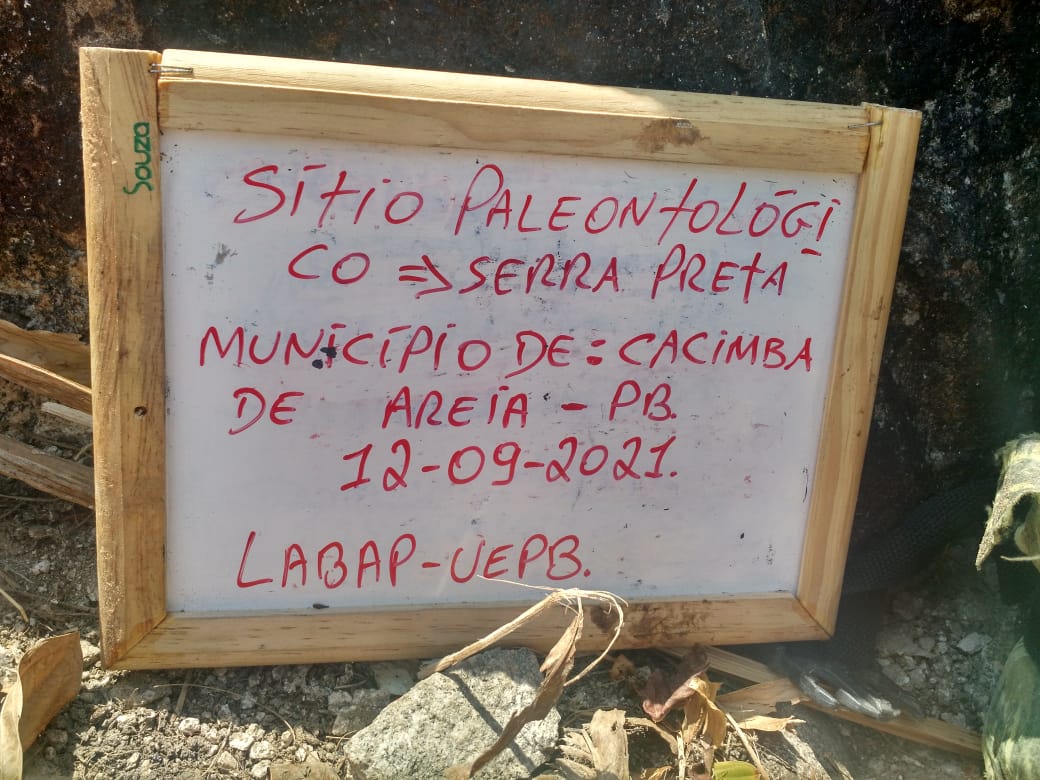 Souza
SÍtio PALEONtOLÓGi
CO => SERRA PREtA
MUNiCÍPiO DE: CACiMBA
DE AREiA - PB.
12-09-2021.
LABAP-UEPB.